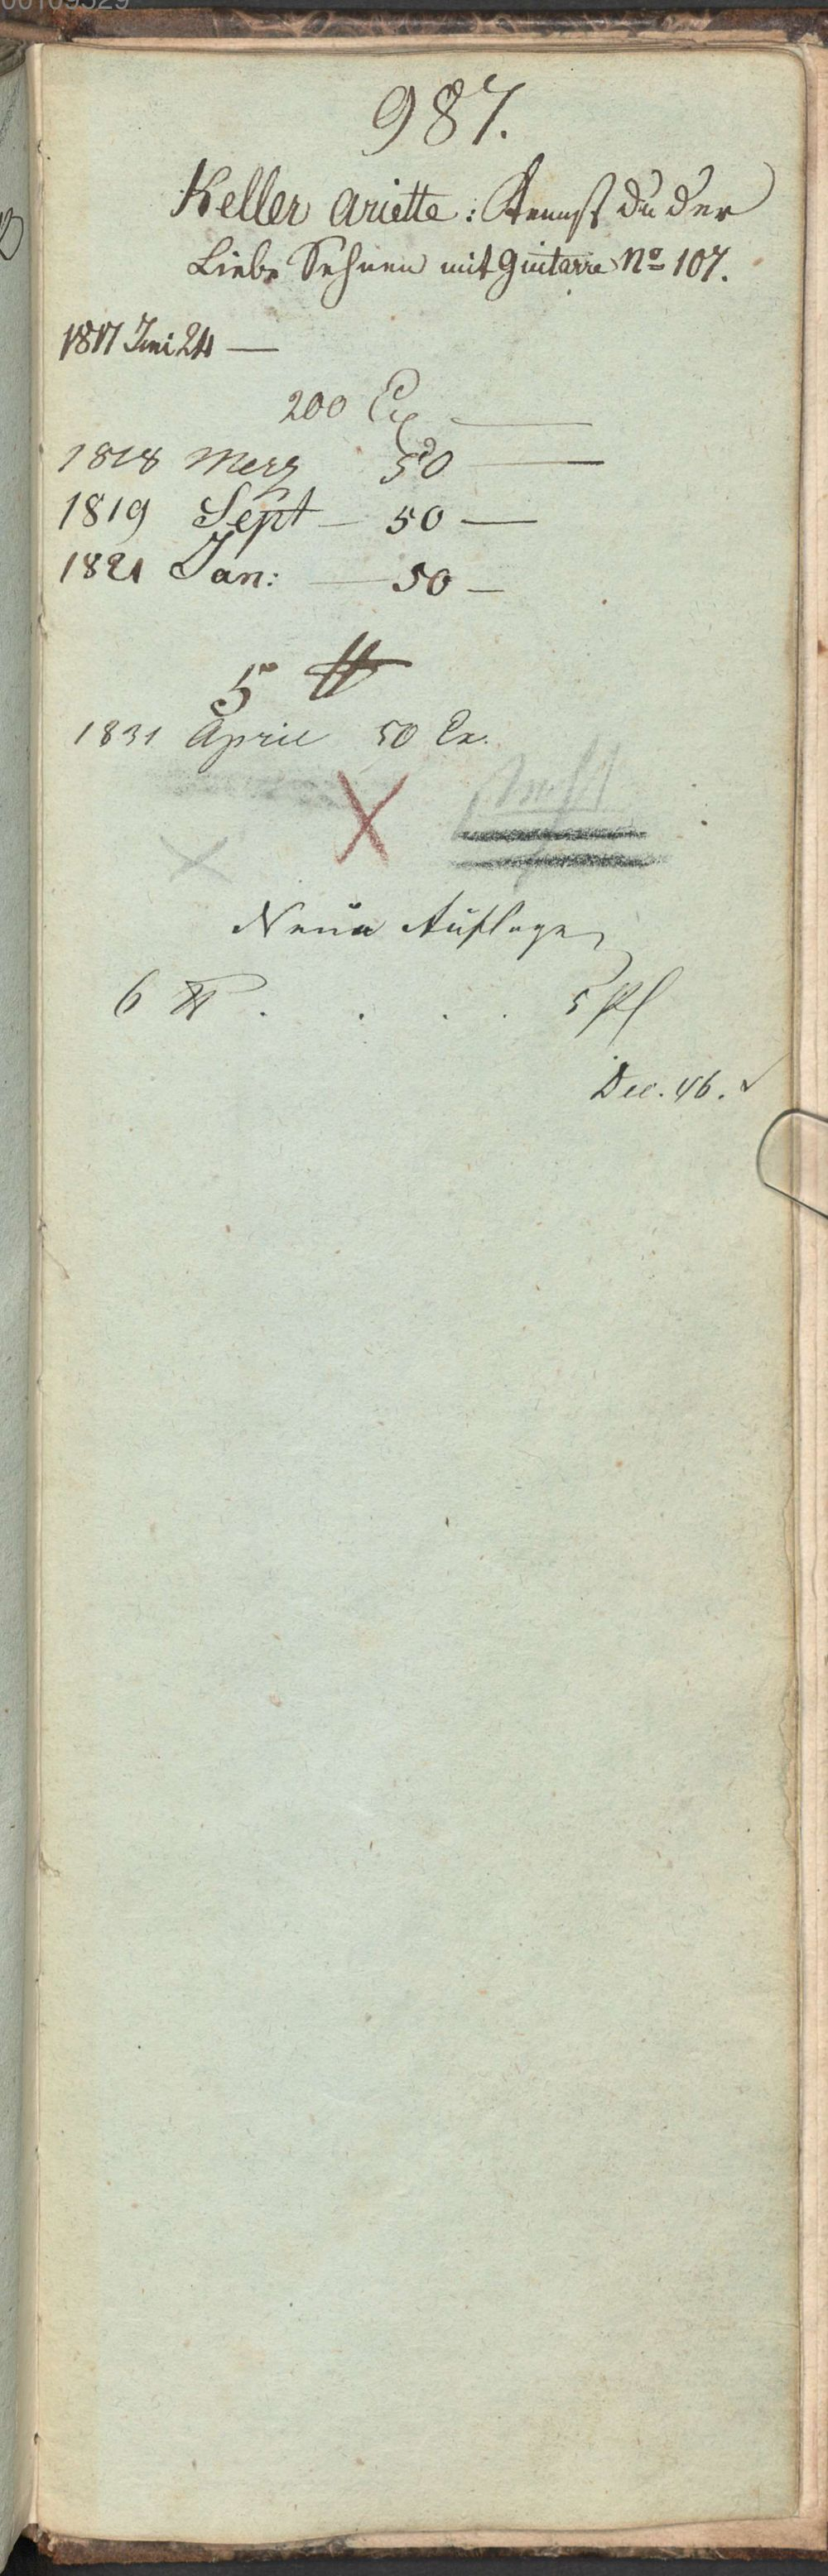 987.
Keller Ariette: Kennst du der
Liebe Sehnen mit Guitarre No 107.
1817 Juni 24 —
200 Ex —
1818 Merz 50 —
1819 Sept — 50 —
1821 Jan: — 50 —
5
1831 April 50 Ex.
X
Neue Auflage
6 . . . . 5 Pl
Dec. 46.